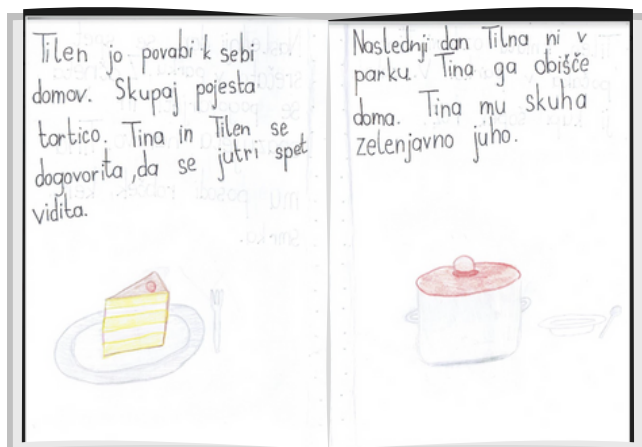 Tilen jo povabi k sebi
domov. Skupaj pojesta
tortico. Tina in Tilen se
dogovorita, da se jutri spet
vidita.
Naslednji dan Tilna ni v
parku. Tina ga obišče
doma. Tina mu skuha
zelenjavno juho.